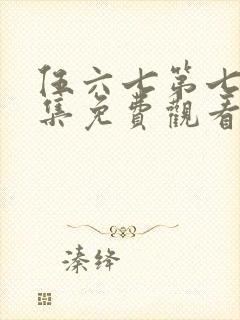 伍六七第七
集免費觀看
溱绛